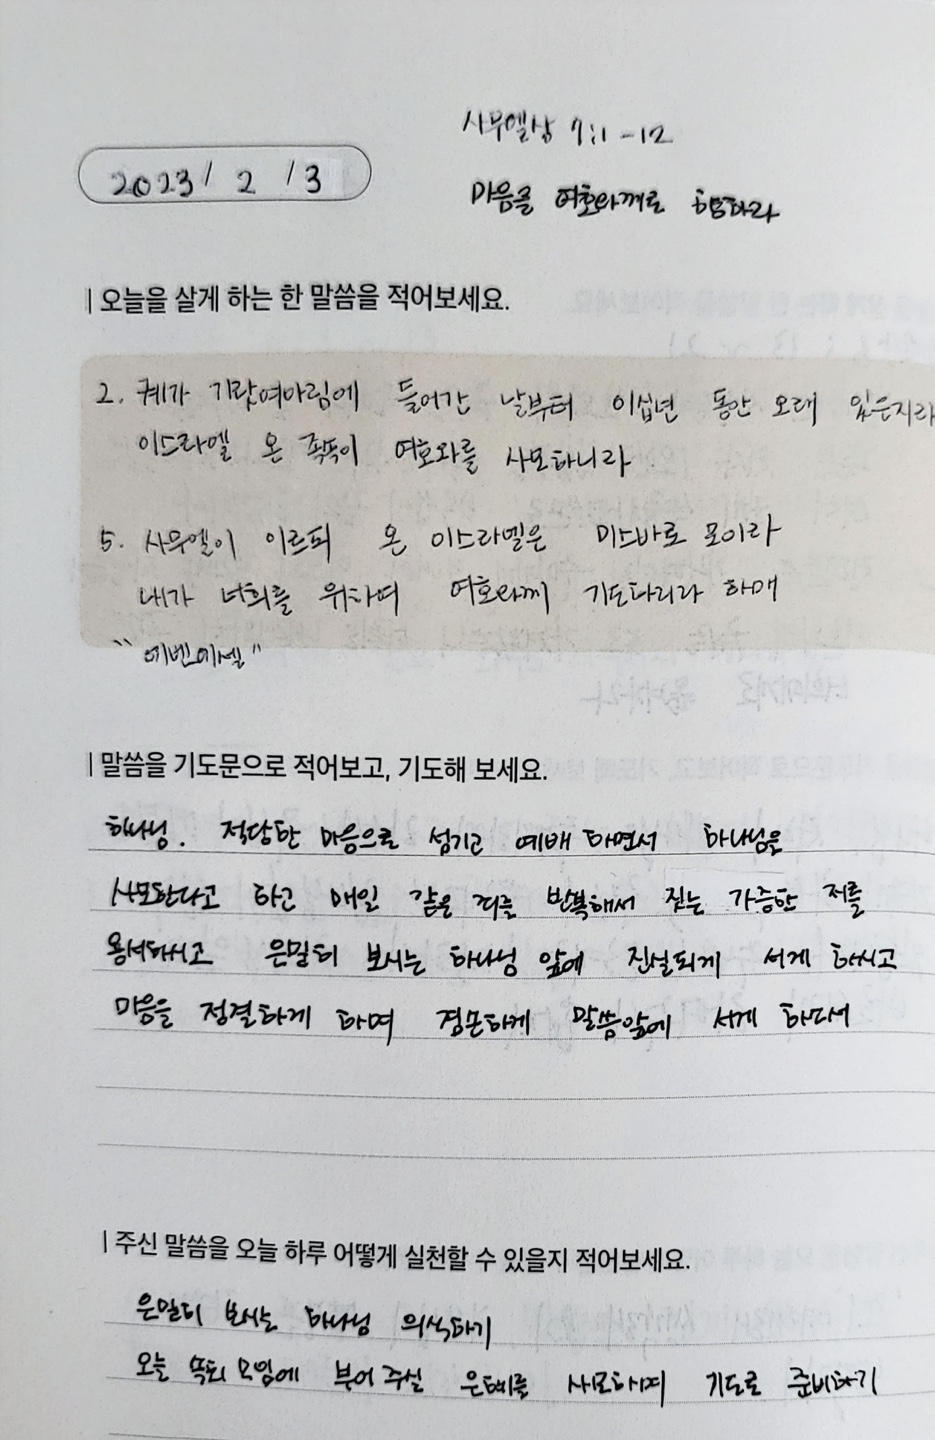 사무엘상 7:1-12
2023/2/3
마음을 여호와께로 향하라
오늘을 살게 하는 한 말씀을 적어보세요.
2. 궤가 기럇여아림에 들어간 날부터 이십년 동안 오래 있은지라
이스라엘 온 족속이 여호와를 사모하니라
5. 사무엘이 이르되 온 이스라엘은 미스바로 모이라
내가 너희를 위하여 여호와께 기도하리라 하매
"에벤에셀"
말씀을 기도문으로 적어보고, 기도해 보세요.
하나님. 적당한 마음으로 섬기고 예배 하면서 하나님을
사모한다고 하고 매일 같은 죄를 반복해서 짓는 가증한 저를
용서하시고 은밀히 보시는 하나님 앞에 진실되게 서게 하시고
마음을 정결하게 하며 겸손하게 말씀앞에 서게 하소서
주신 말씀을 오늘 하루 어떻게 실천할 수 있을지 적어보세요.
은밀히 보시는 하나님 의식하기
오늘 모임에 부어 주실 은혜를 사모하며 기도로 준비하기